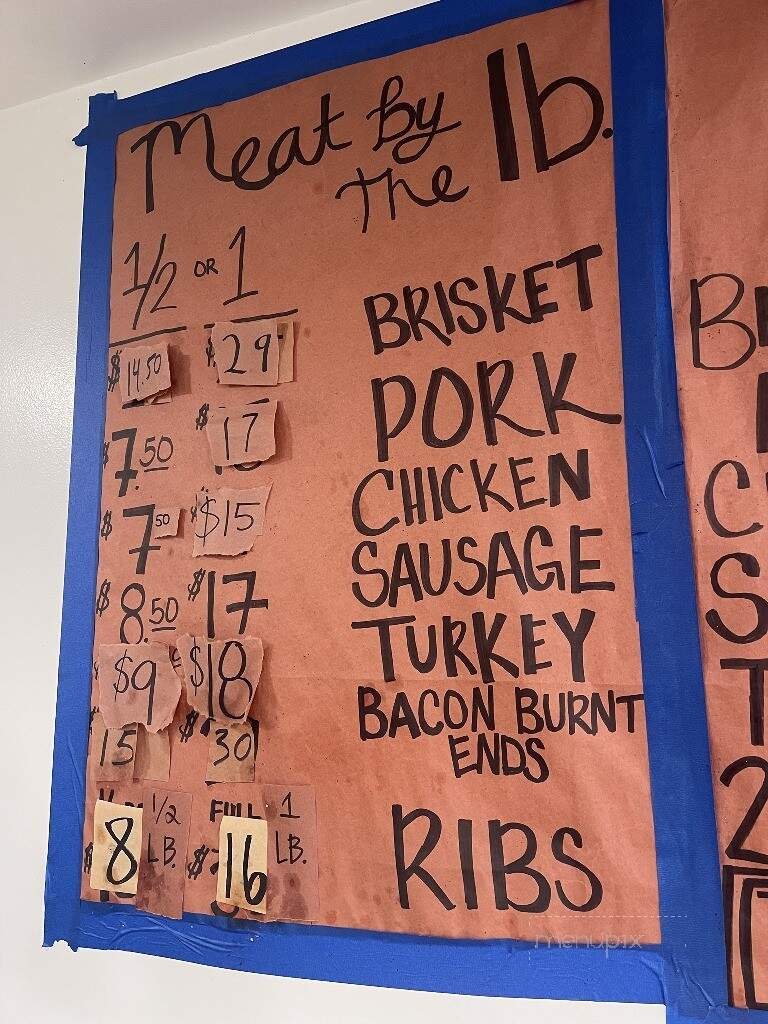 Meat By
The lb.
1/2 OR 1
$14.50 $29 BRISKET
$7.50 $17 PORK
$7.50 $15 CHICKEN
$8.50 $17 SAUSAGE
$9 $18 TURKEY
15 $30 BACON BURNT
ENDS
1/2 LB. FULL 1 LB.
$8 $16 RIBS
menupix